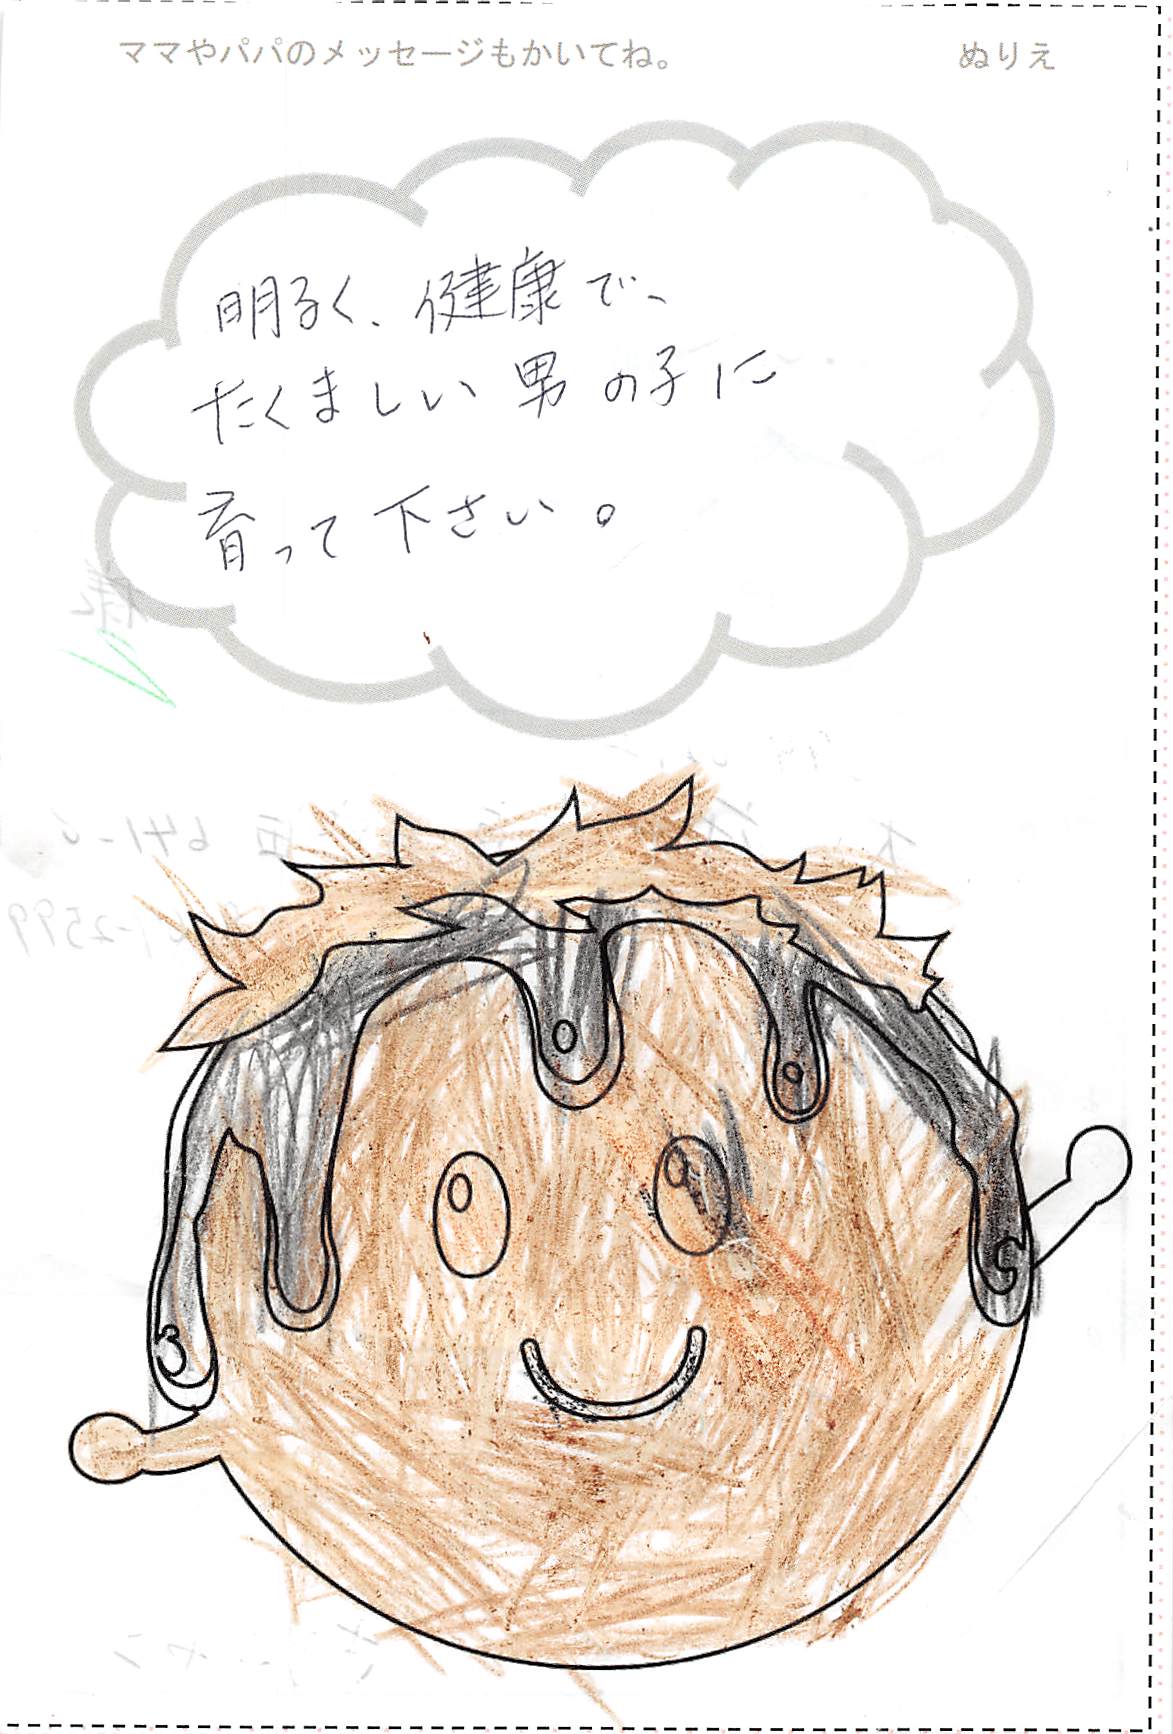 ママやパパのメッセージもかいてね。
ぬりえ
明るく、健康で、
たくましい男の子に
育って下さい。
様